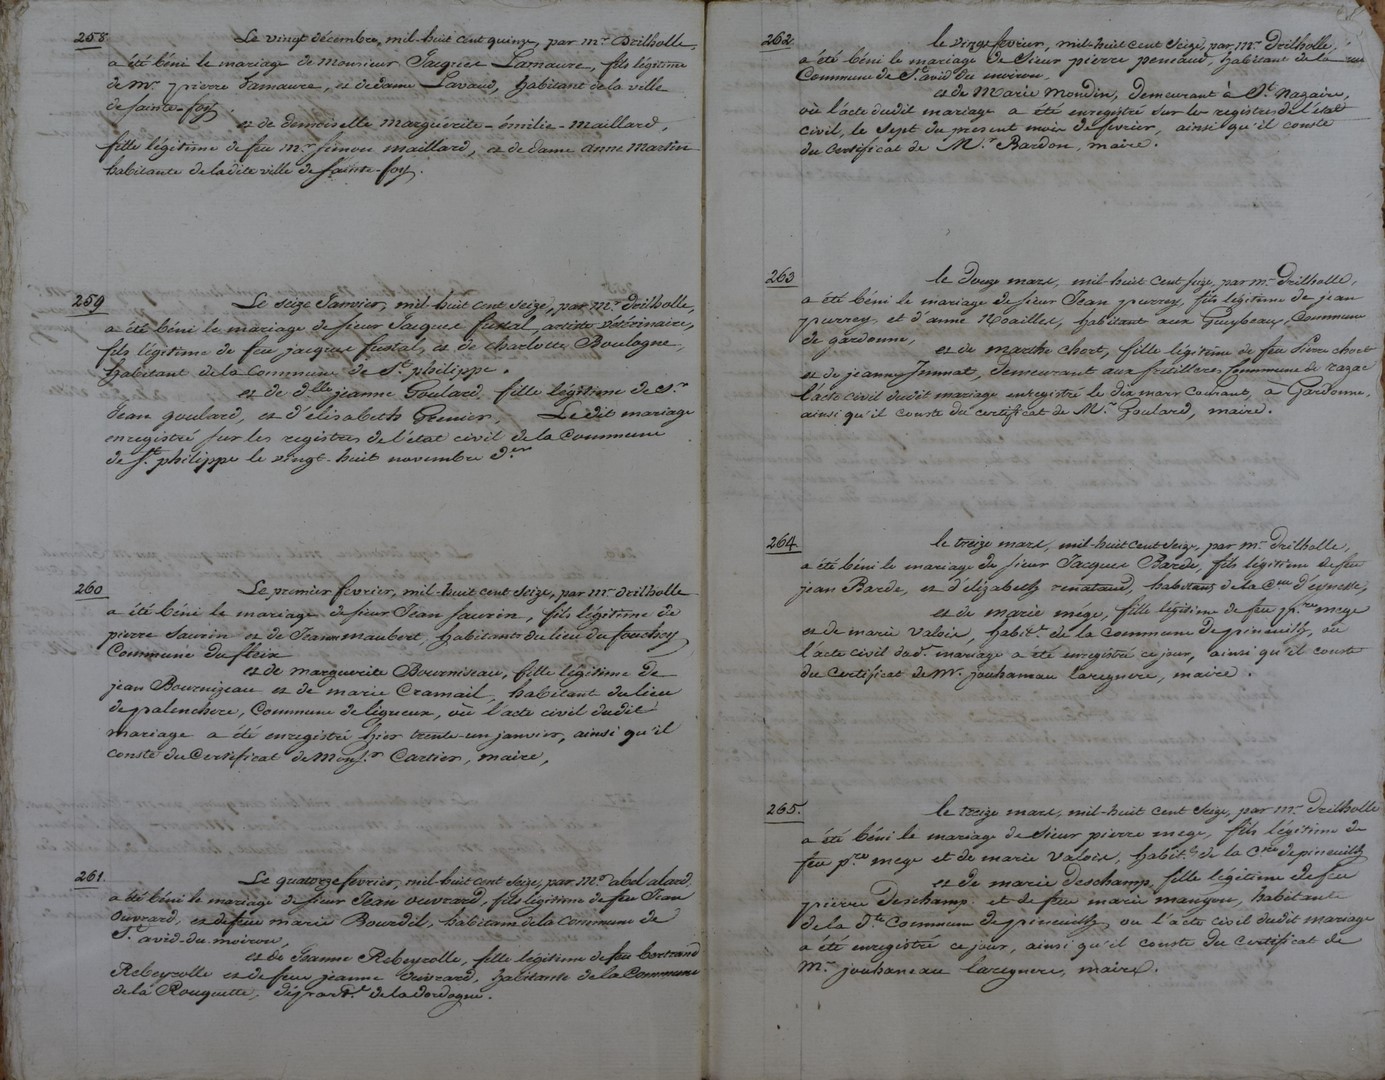 258.
Le vingt décembre, mil-huit cent quinze, par mr. Drilholle,
a été béni le mariage de Monsieur Jacques Lamaure, fils légitime
de mr. pierre Lamaure, et de dame Lavaud, habitant de la ville
de sainte-foy.
et de demoiselle marguérite-émilie-maillard,
fille légitime de feu mr. simon maillard, et de dame anne Martin
habitante de la dite ville de sainte-foy.
259
Le seize Janvier, mil-huit cent seize, par mr. Drilholle,
a été béni le mariage de sieur Jacques fustal, artiste vétérinaire,
fils légitime de feu jacques fustal, et de charlotte Boulogne,
habitant de la Commune de St. philippe.
et de dlle jeanne Goulard, fille légitime de Sr.
Jean goulard, et d'élisabeth Grenier. Le dit mariage
enregistré sur les registres de l'état civil de la Commune
de St. philippe le vingt-huit novembre der.
260
Le premier février, mil-huit cent seize, par mr. drilholle
a été béni le mariage de sieur Jean saurin, fils légitime de
pierre Saurin et de Jeanne maubert, habitants du lieu de
Commune du fleix
et de marguerite Bourniseau, fille légitime de
jean Bournizeau et de marie Cramail, habitant du lieu
de palenchere, Commune de ligueux, où l'acte civil dudit
mariage a été enregistré hier trente-un janvier, ainsi qu'il
conste du Certificat de Monsr. Cartier, maire,
261.
Le quatorze février, mil-huit cent seize, par mr. abel alard,
a été béni le mariage de sieur Jean ouvrard, fils légitime de feu Jean
Ouvrard, et de feu marie Bourdil, habitant de la Commune de
St. avid-du-moiron,
et de Jeanne Rebeyrolle, fille légitime de feu bertrand
Rebeyrolle et de feu jeanne Ouvrard, habitante de la Commune
de la Rouquette, départt. de la dordogne.
262
le vingt février, mil-huit cent seize, par mr. Drilholle,
a été béni le mariage de Sieur pierre peneaud, habitant de la
Commune de St. avid du moiron.
et de Marie Mondin, demeurant à St. Nazaire,
où l'acte dudit mariage a été enregistré sur le registre de l'état
civil, le Sept du présent mois de février, ainsi qu'il conste
du Certificat de Mr. Bardon, maire.
263
le Douze mars, mil-huit cent seize, par mr. Drilholle,
a été béni le mariage de sieur Jean purrey, fils légitime de jean
purrey, et d'anne Noailles, habitant aux Guybeaux, Commune
de gardonne,
et de marthe chort, fille légitime de feu Pierre chort
et de jeanne Simnat, demeurant aux Commune de razac
l'acte civil dudit mariage enregistré le dix mars courant, à Gardonne,
ainsi qu'il conste du certificat de Mr. Goulard, maire.
264
le treize mars, mil-huit cent seize, par mr. drilholle,
a été béni le mariage de sieur Jacques Barde, fils légitime de feu
jean Barde, et d'élizabeth renataud, habitans de la Cne d'eynesse,
et de marie mége, fille légitime de feu prre mege
et de marie Valoie, habitt. de la Commune de pineuilh, où
l'acte civil dudt. mariage a été enregistré ce jour, ainsi qu'il conste
du Certificat de Mr. jouhaneau laregnere, maire.
265.
le treize mars, mil-huit cent seize, par mr. Drilholle
a été béni le mariage de Sieur pierre mege, fils légitime de
feu prre mege et de marie Valoie, habitt. de la Cne de pineuilh
et de marie deschamp, fille légitime de feu
pierre Deschamp et de feu marie mangon, habitante
de la dte Commune de pineuilh, ou l'acte civil dudit mariage
a été enregistré ce jour, ainsi qu'il conste du Certificat de
Mr. jouhaneau laregnere, maire.